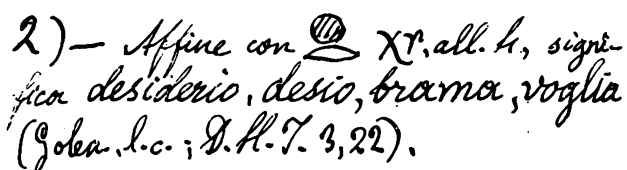 2) — Affine con 𓐍𓂋 χr, all. h, signi-
fica desiderio, desio, brama, voglia
(Golen. l. c.; D. H. T. 3, 22).